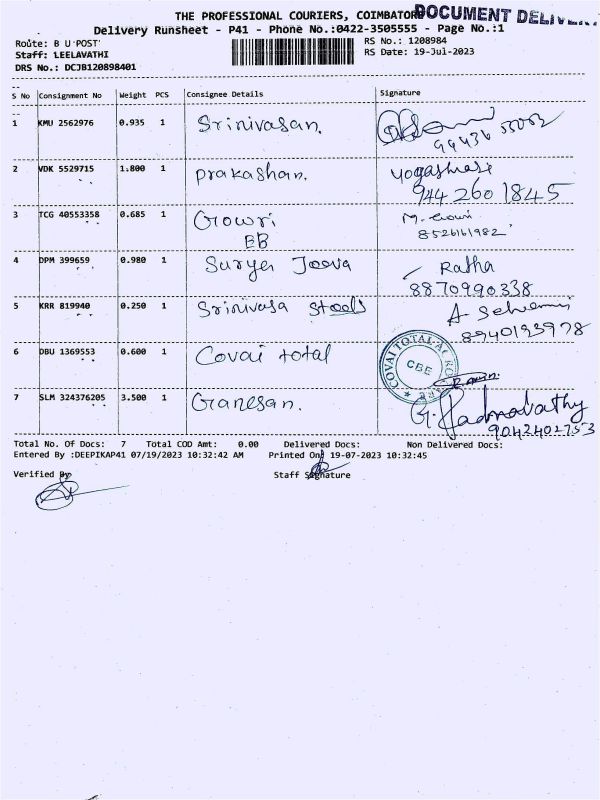 THE PROFESSIONAL COURIERS, COIMBATORE
DOCUMENT DELIVER
Delivery Runsheet - P41 - Phone No.:0422-3505555 - Page No.:1
Route: B U POST RS No.: 1208984
Staff: LEELAVATHI RS Date: 19-Jul-2023
DRS No.: DCJB120898401
S No Consignment No Weight PCS Consignee Details Signature
1 KMU 2562976 0.935 1 Srinivasan.
2 VDK 5529715 1.800 1 prakashan. 
9442601845
3 TCG 40553358 0.685 1 Gowri M. Gowri
EB 8526161982
4 DPM 399659 0.980 1 Surya Jeeva Ratha
8870990338
5 KRR 819940 0.250 1 Srinivasa Steels A
8940193978
6 DBU 1369553 0.600 1 Covai total COVAI TOTAL
CBE
7 SLM 324376205 3.500 1 Ganesan. G. Padmavathy
9042402753
Total No. Of Docs: 7 Total COD Amt: 0.00 Delivered Docs: Non Delivered Docs:
Entered By :DEEPIKAP41 07/19/2023 10:32:42 AM Printed On: 19-07-2023 10:32:45
Verified By Staff Signature